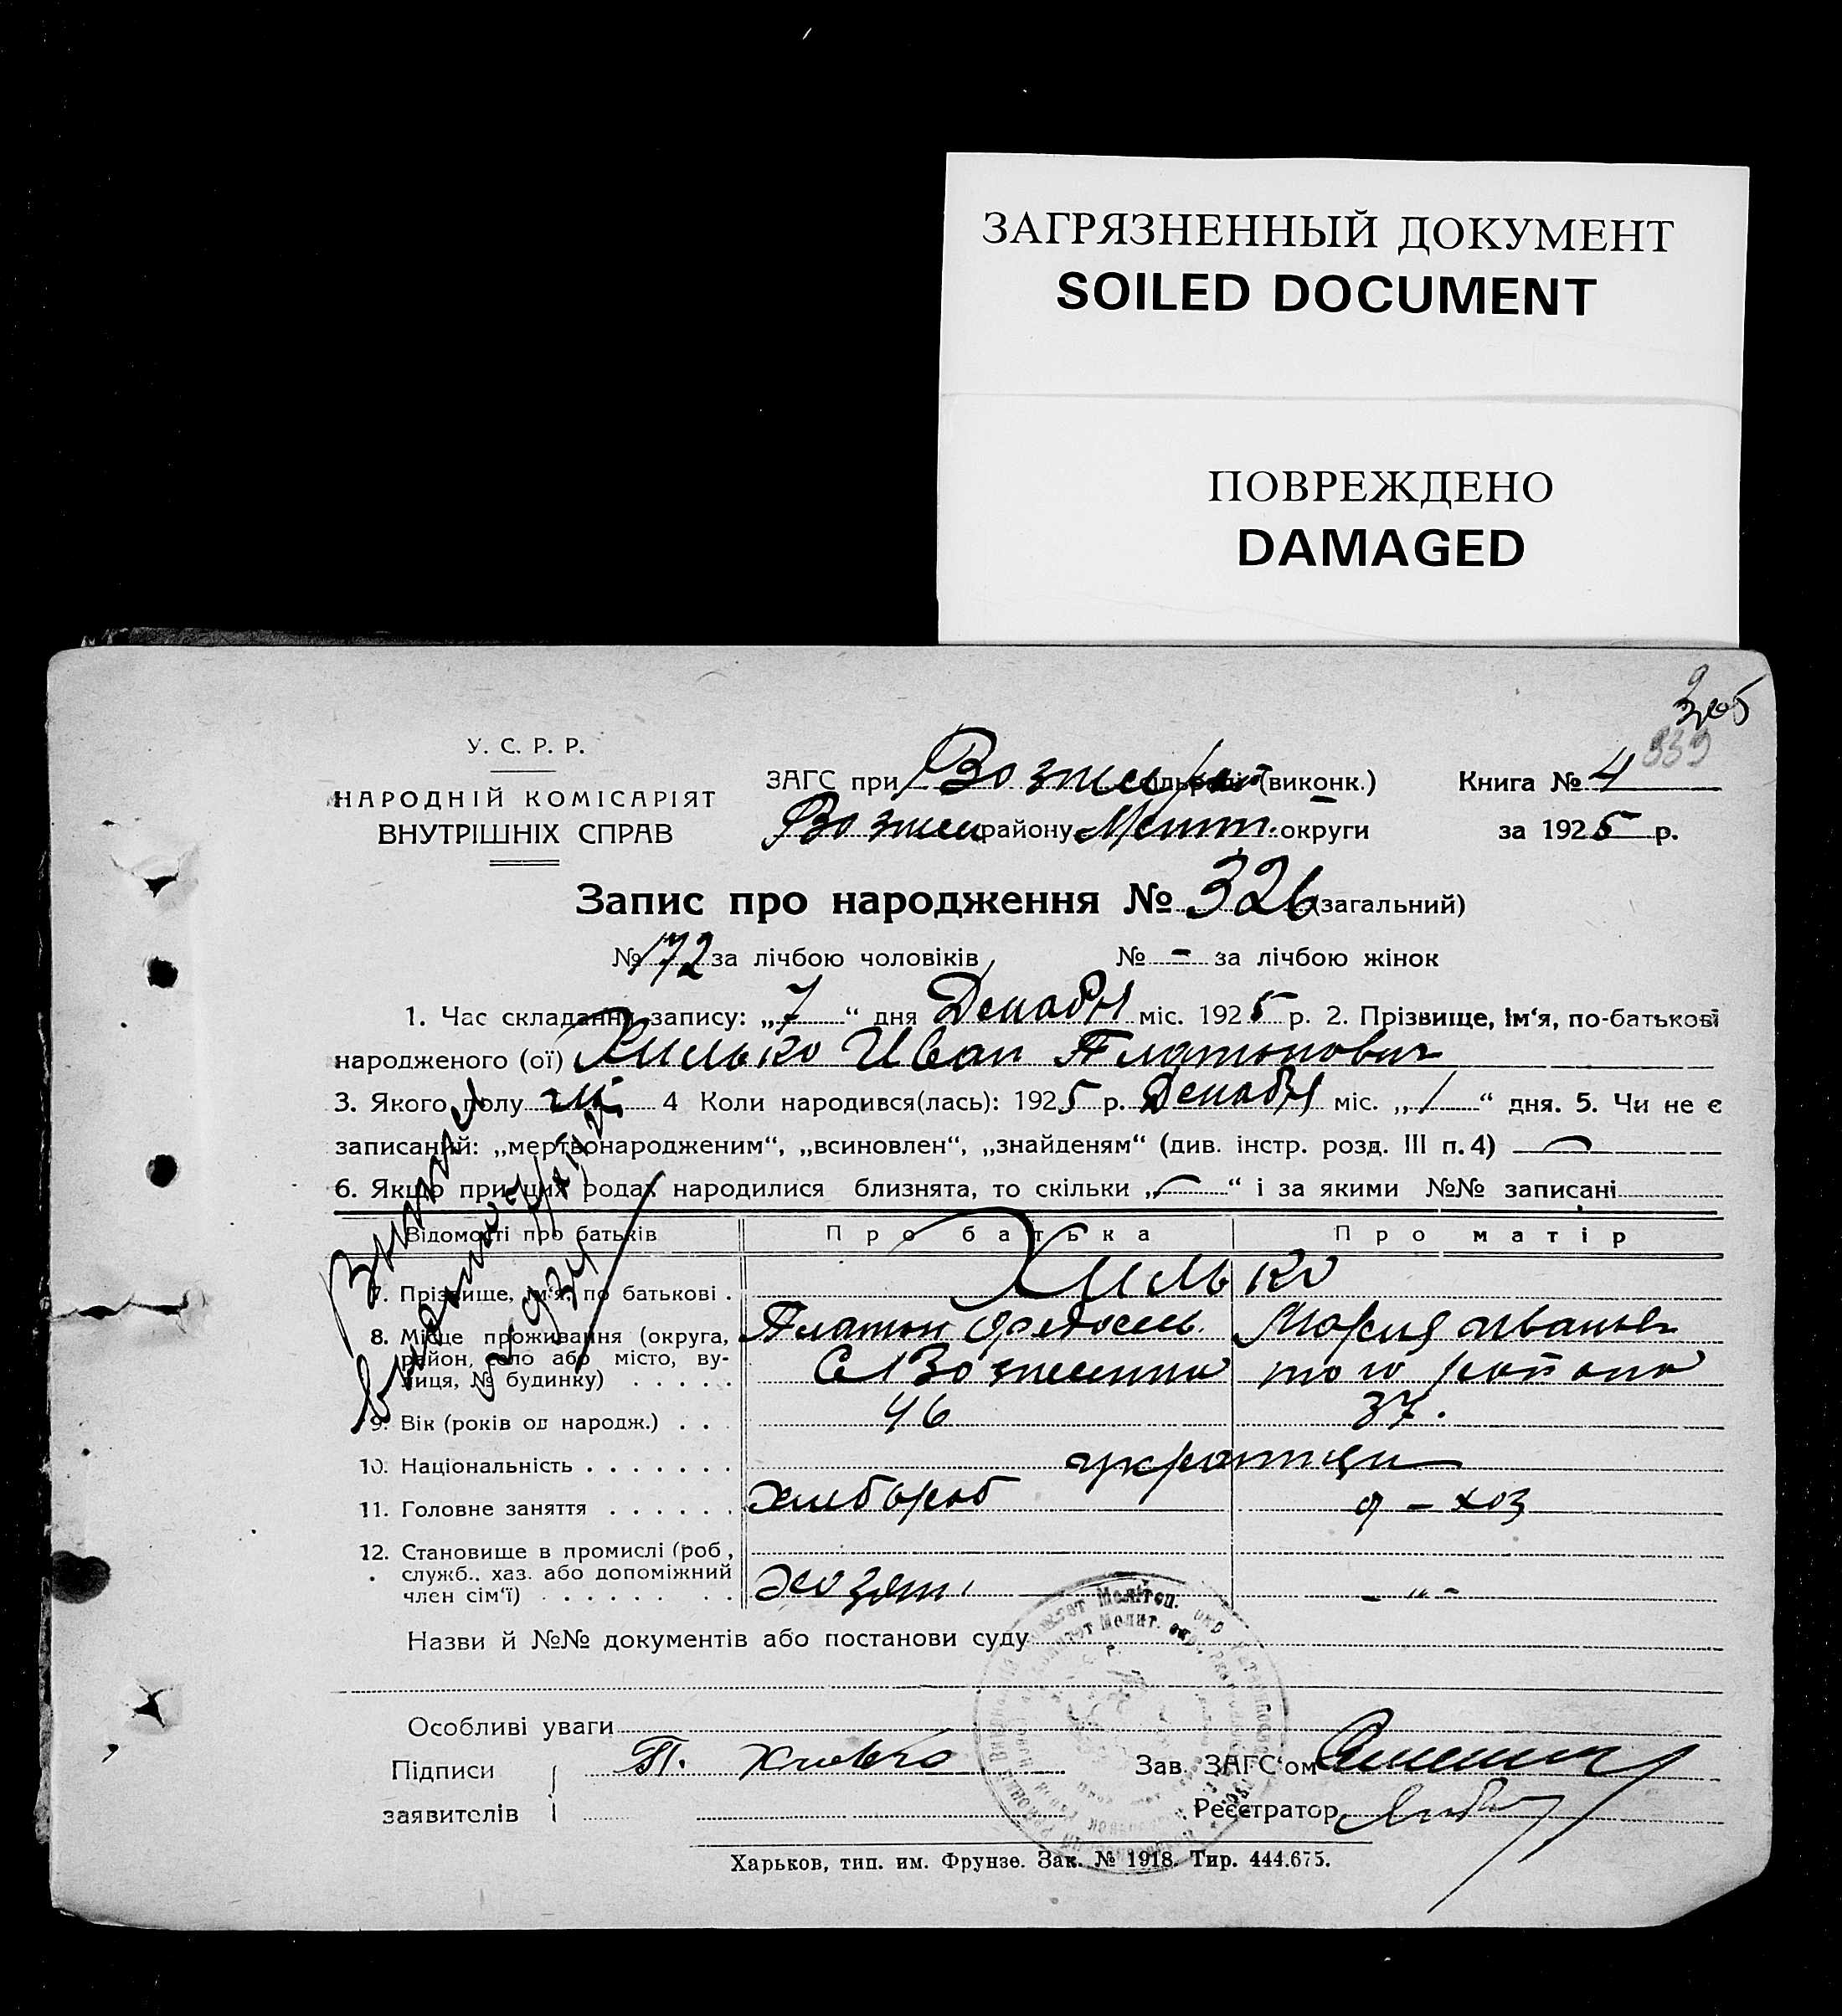 ЗАГРЯЗНЕННЫЙ ДОКУМЕНТ
SOILED DOCUMENT
ПОВРЕЖДЕНО
DAMAGED
339
У. С. Р. Р.
НАРОДНІЙ КОМІСАРІЯТ
ВНУТРІШНІХ СПРАВ
ЗАГС при Вознен/рай (виконк.) Книга № 4
Вознен району Меліт. округи за 1925 р.
Запис про народження № 326 (загальний)
№ 172 за лічбою чоловіків, № - за лічбою жінок
1. Час складання запису: „7“ дня Декабря міс. 1925 р. 2. Прізвище, ім‘я, по-батькові
народженого (ої) Хилько Иван Платонович
3. Якого полу 4 Коли народився(лась): 1925 р. Декабря міс. „1“ дня. 5. Чи не є
записаний: „мертвонародженим“, „всиновлен“, „знайденям“ (див. інстр. розд. III п. 4) —
6. Якщо при цих родах народилися близнята, то скільки „—“ і за якими №№ записані
Відомості про батьків Про батька Про матір
7. Прізвище, ім‘я, по батькові . Хилько
8. Місце проживання (округа, Платон Федосеев. Мария Иванов
район, село або місто, ву-
лиця, № будинку) . . . . . С Вознесенка того района
9. Вік (років од народж.) . . . 46 37.
10. Національність . . . . . . . украинцы
11. Головне заняття . . . . . . хлебороб д - хоз
12. Становище в промислі (роб.,
служб., хаз. або допоміжний
член сім‘ї) . . . . . . . . хозяин - „ -
Назви й №№ документів або постанови суду
Особливі уваги
Підписи П. Хилько Зав. ЗАГС‘ом
заявителів Реєстратор
Харьков, тип. им. Фрунзе. Зак. № 1918. Тир. 444.675.